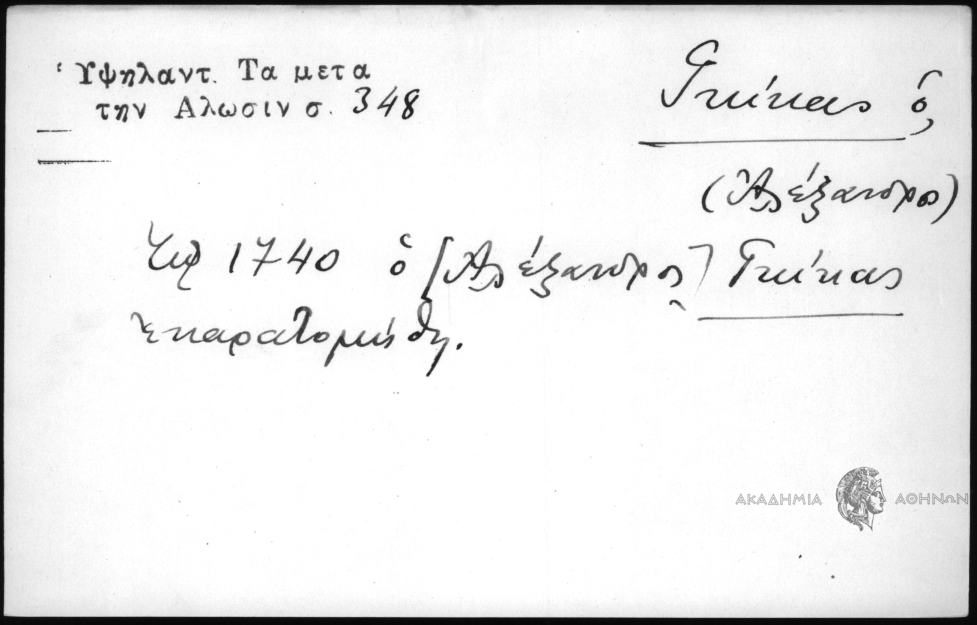 Ὑψηλαντ. Τα μετα
την Αλωσιν σ. 348
Γκίκας ὁ,
(Ἀλέξανδρος)
1740 ὁ [Ἀλέξανδρος] Γκίκας
ἐκαρατομήθη.
ΑΚΑΔΗΜΙΑ ΑΘΗΝΩΝ